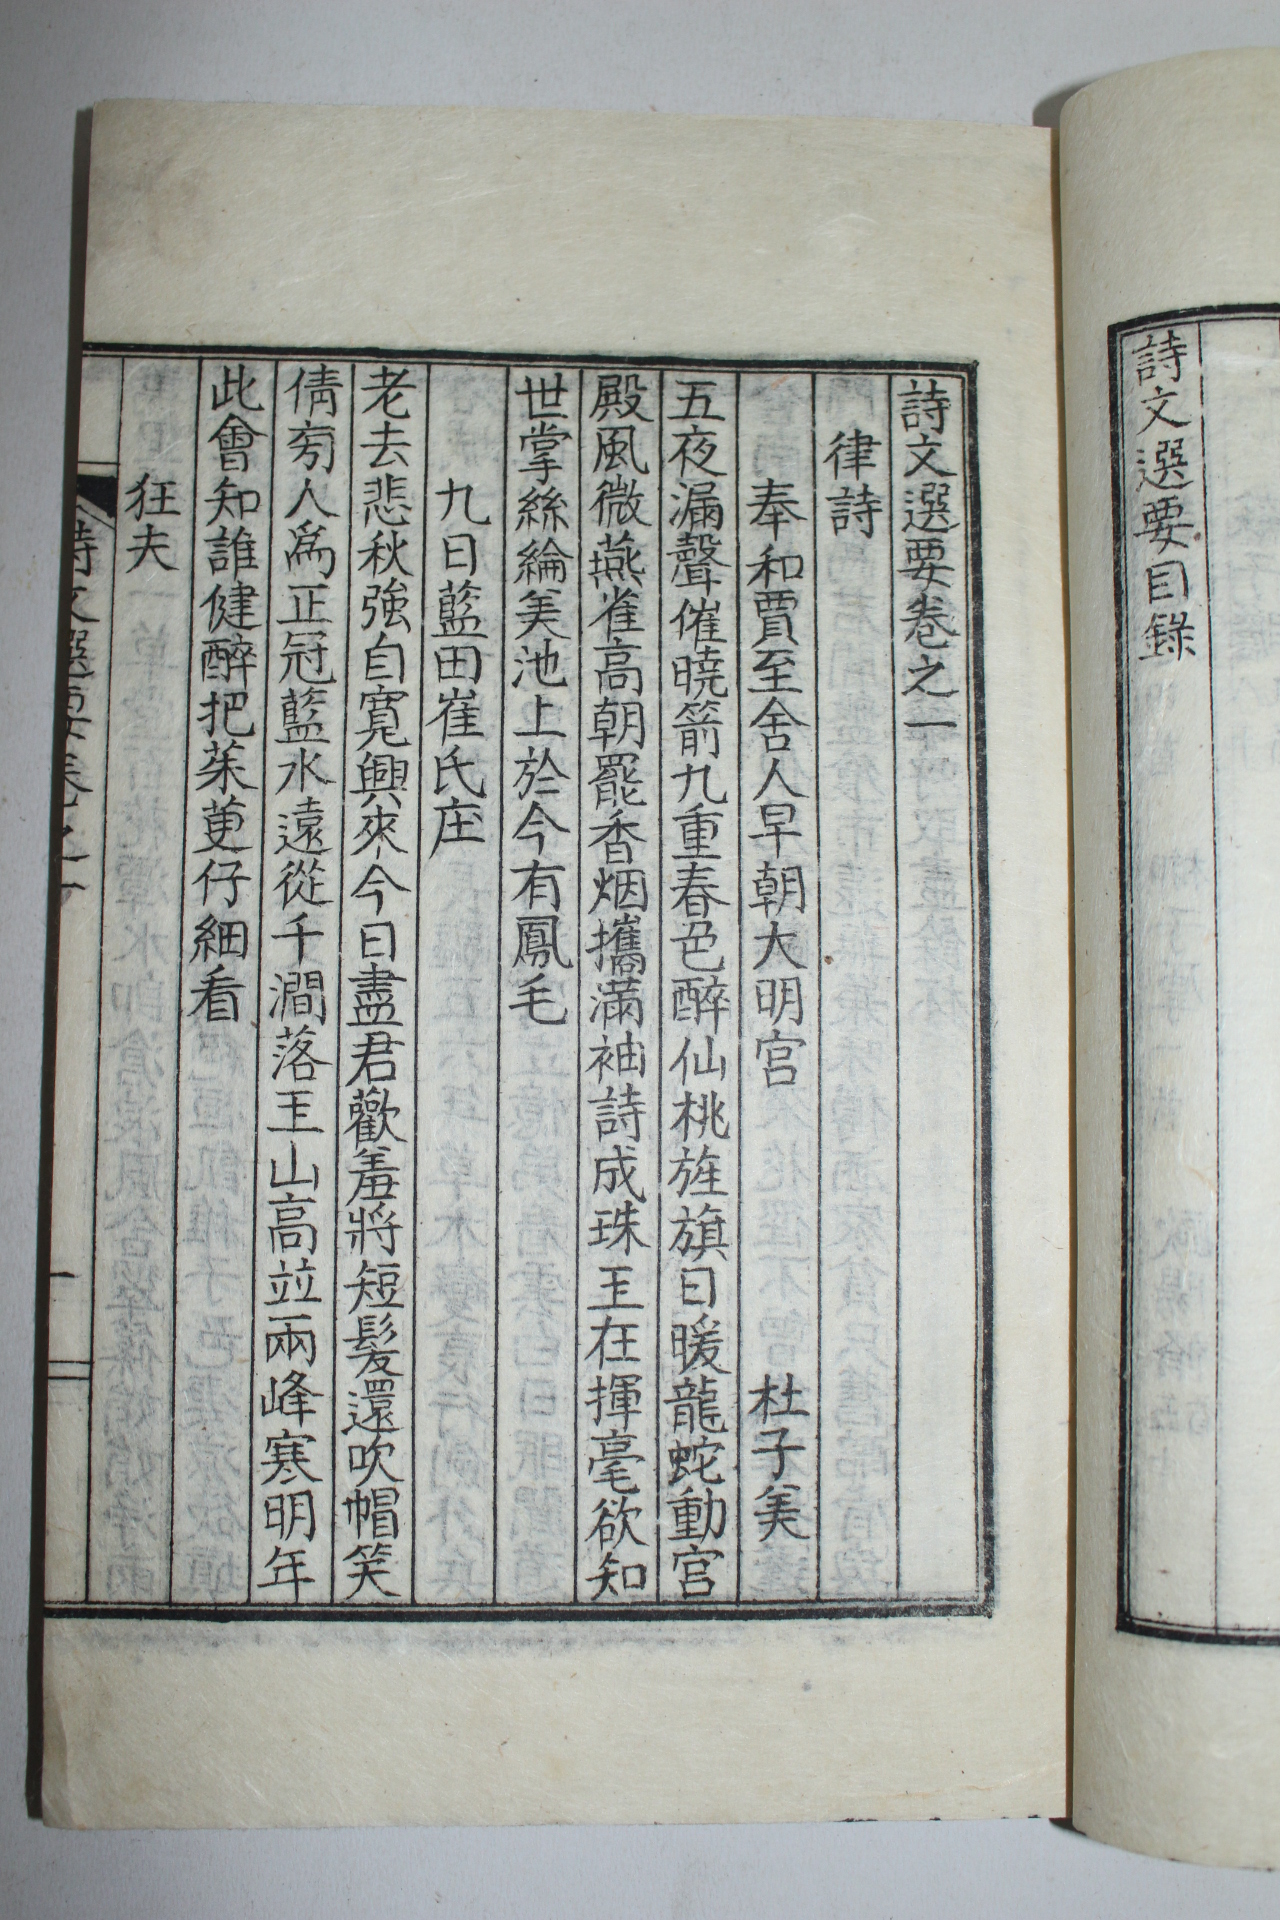 詩文選要目錄
詩文選要卷之一
律詩
奉和賈至舍人早朝大明宮 杜子美
五夜漏聲催曉箭九重春色醉仙桃旌旗日暖龍蛇動宮
殿風微燕雀高朝罷香烟攜滿袖詩成珠玉在揮毫欲知
世掌絲綸美池上於今有鳳毛
九日藍田崔氏庄
老去悲秋強自寬興來今日盡君歡羞將短髮還吹帽笑
倩旁人爲正冠藍水遠從千澗落玉山高並兩峰寒明年
此會知誰健醉把茱萸仔細看
狂夫
詩文選要卷之一 一